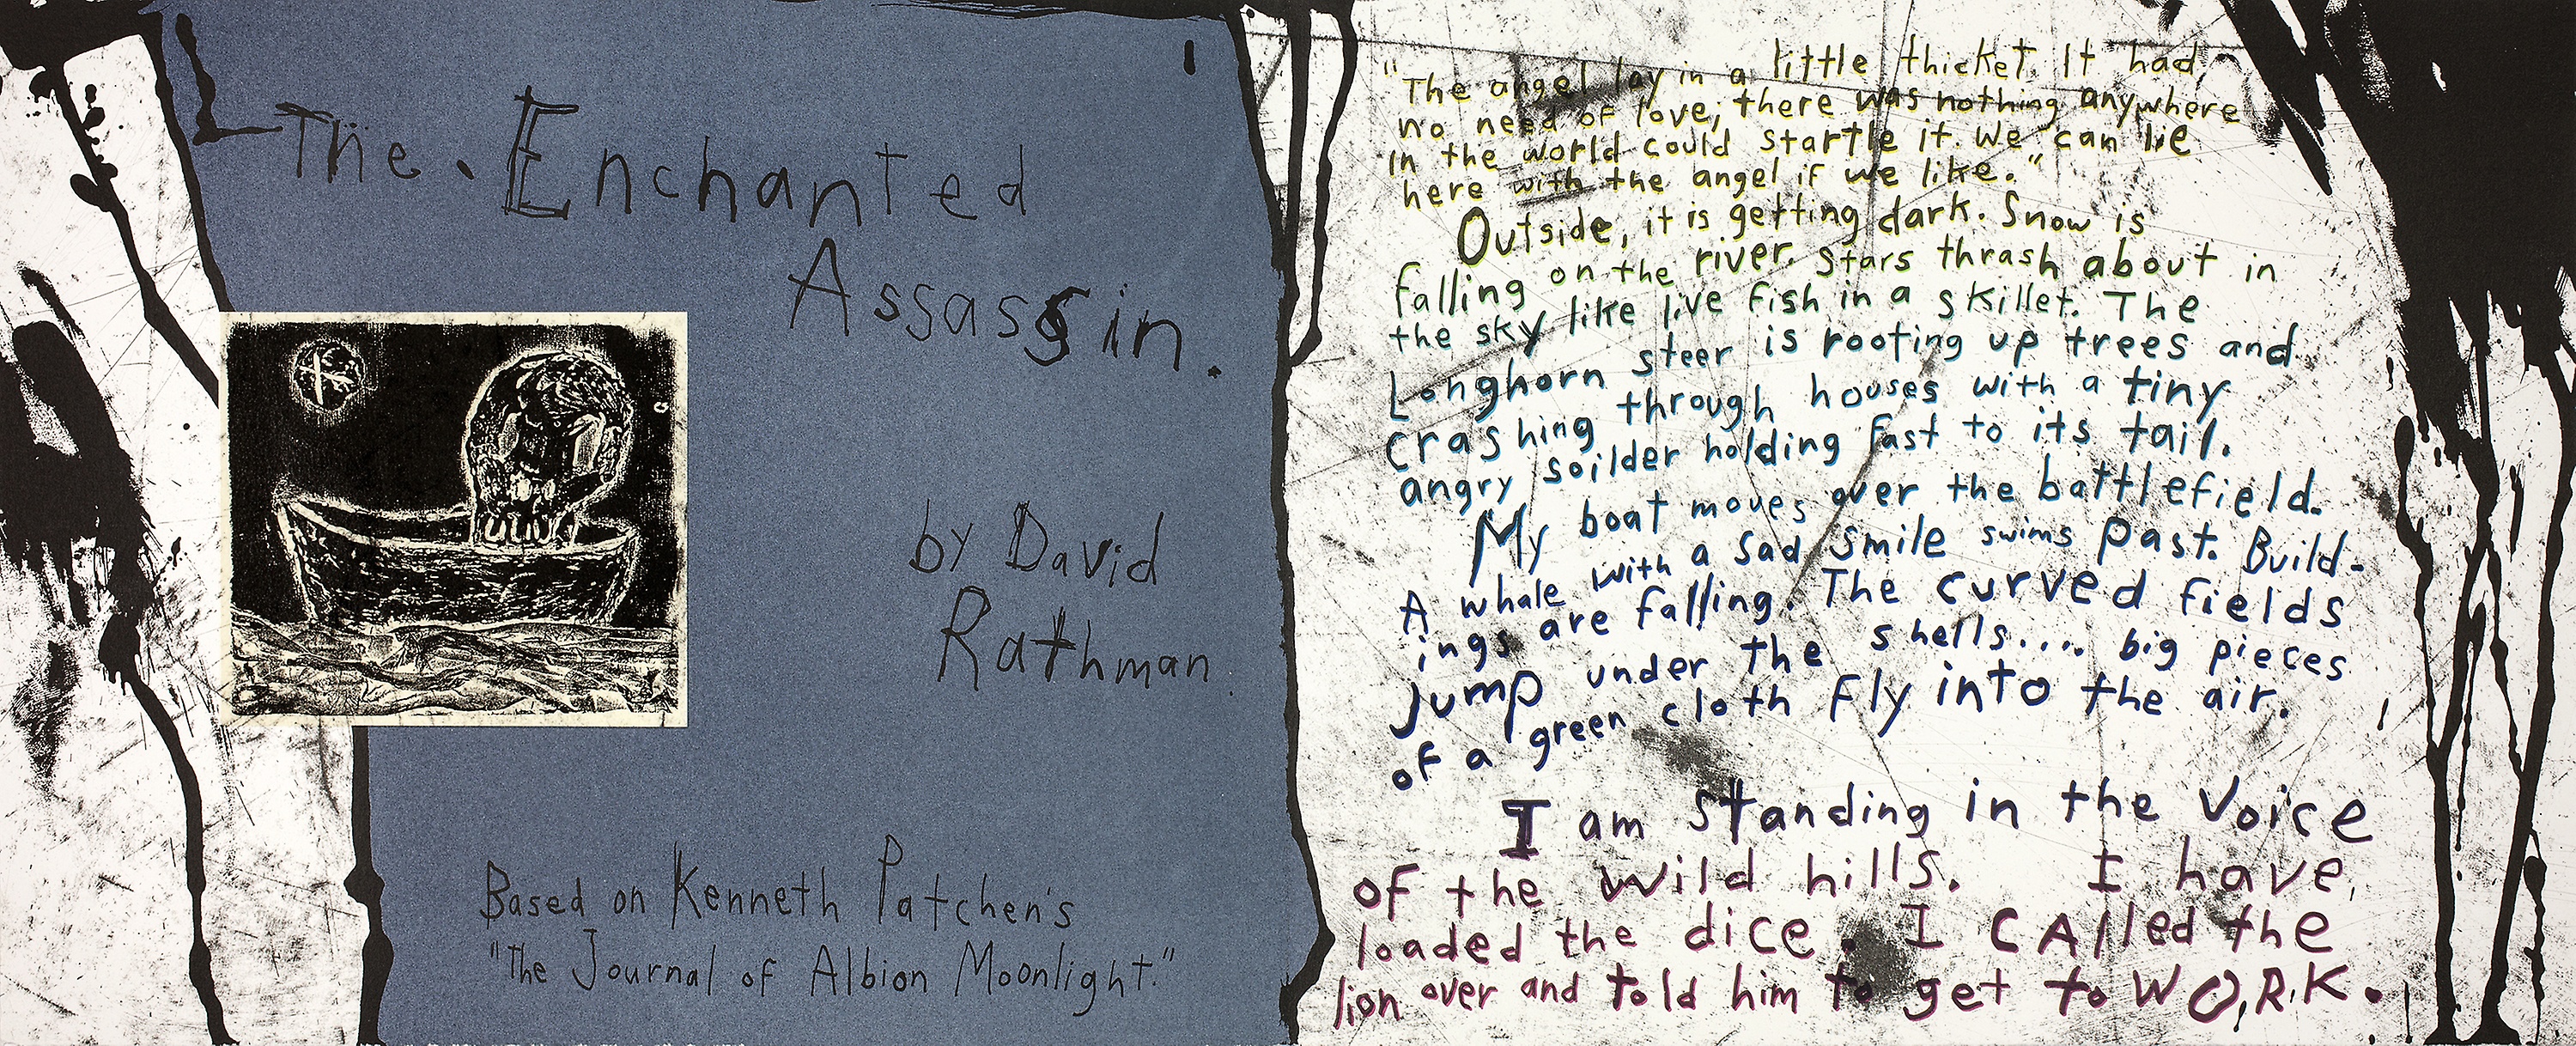 The Enchanted
Assassin.
by David
Rathman.
Based on Kenneth Patchen's
"The Journal of Albion Moonlight."
"The angel lay in a little thicket. It had
no need of love; there was nothing anywhere
in the world could startle it. We can lie
here with the angel if we like."
Outside, it is getting dark. Snow is
falling on the river. Stars thrash about in
the sky like live fish in a skillet. The
Longhorn steer is rooting up trees and
crashing through houses with a tiny
angry soilder holding fast to its tail.
My boat moves over the battlefield.
A whale with a sad smile swims past. Build-
ings are falling. The curved fields
jump under the shells.... big pieces
of a green cloth fly into the air.
I am standing in the voice
of the wild hills. I have
loaded the dice. I CAlled the
lion over and told him to get to WORK.